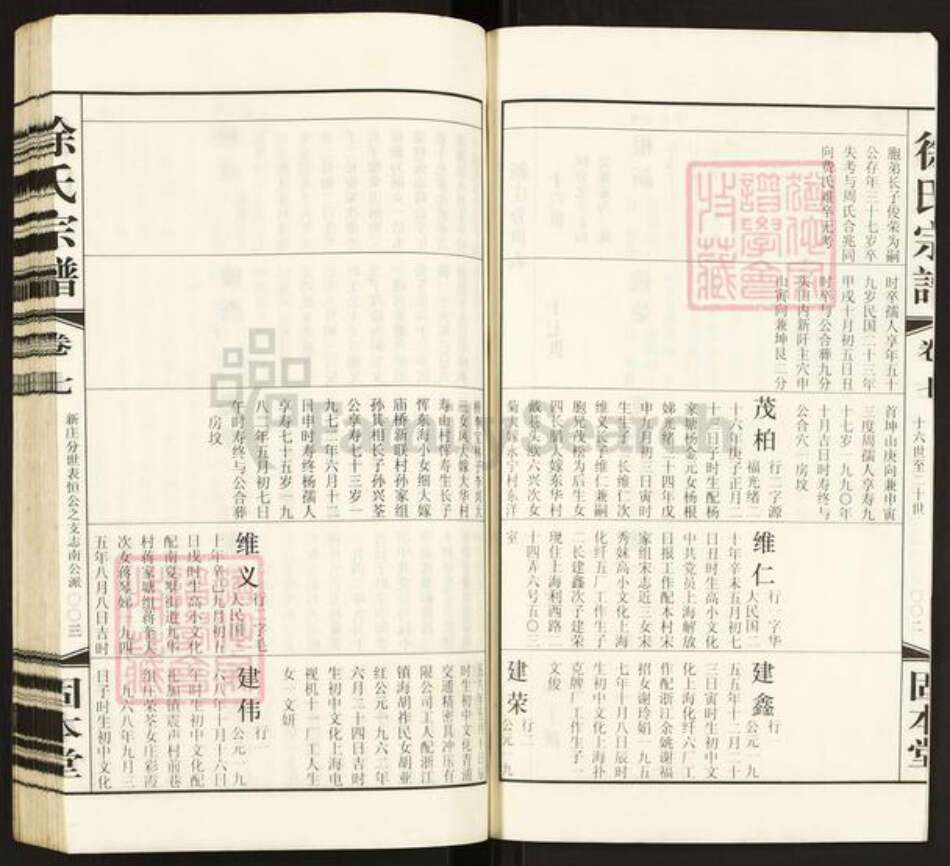 徐氏宗譜
卷七
十六世至二十世
固本堂
胞弟长子俊荣为嗣
公存年三十七岁卒
失考与周氏合兆同
向费氏雄卒无考
时卒孺人享年五十
九岁民国二十三年
甲戌十月初五日丑
时卒与公合葬九分
头田内新阡主穴申
山寅向兼坤艮二分
首坤山庚向兼申寅
三度周孺人享寿九
十七岁一九九〇年
十月吉日时寿终与
公合穴一房坟
茂柏
行二字源
福光绪二
十六年庚子正月二
十一日子时生配杨
家塘杨金元女杨根
娣光绪三十四年戊
申九月初三日寅时
生生子二长维仁次
维义长子维仁兼嗣
胞兄茂松为后生女
四长腊大嫁东华村
戴巷头耿六兴次女
菊大嫁永宁村东洋
维仁
行一字华
人民国二
十年辛未五月初七
日丑时生高小文化
中共党员上海解放
日报工作配本村宋
家组宋志近三女宋
秀妹高小文化上海
化纤五厂工作生子
二长建鑫次子建荣
现住上海利西路二
十四弄六号五〇三
室
建鑫
行一
公元一九
五五年十二月二十
三日寅时生初中文
化上海化纤六厂工
作配浙江余姚谢福
招女谢玲娟一九五
七年十月八日辰时
生初中文化上海扑
克牌厂工作生子一
文俊
建荣
行二
公元一九
时生初中文化青浦
交通精密具冲压有
限公司工人配浙江
镇海胡祚民女胡亚
红公元一九六二年
六月二十四日吉时
生初中文化上海电
视机十一厂工人生
女一文妍
寿山村恽寿生长子
恽东海小女细大嫁
庙桥新联村孙家组
孙其相长子孙兴筌
公享寿七十三岁一
九七二年六月十二
日申时寿终杨孺人
享寿七十五岁一九
八二年五月初七日
午时寿终与公合葬
一房坟
维义
行二字毛
人民国三
十年辛巳九月初五
日戌时生高小文化
次女蒋琴娣一九四
五年八月八日吉时
建伟
行一
公元一九
六八年十月十六日
午时生初中文化配
一九六八年九月三
日子时生初中文化
徐氏宗譜
卷七
新庄分世表恒公之支志南公派
〇〇三
固本堂